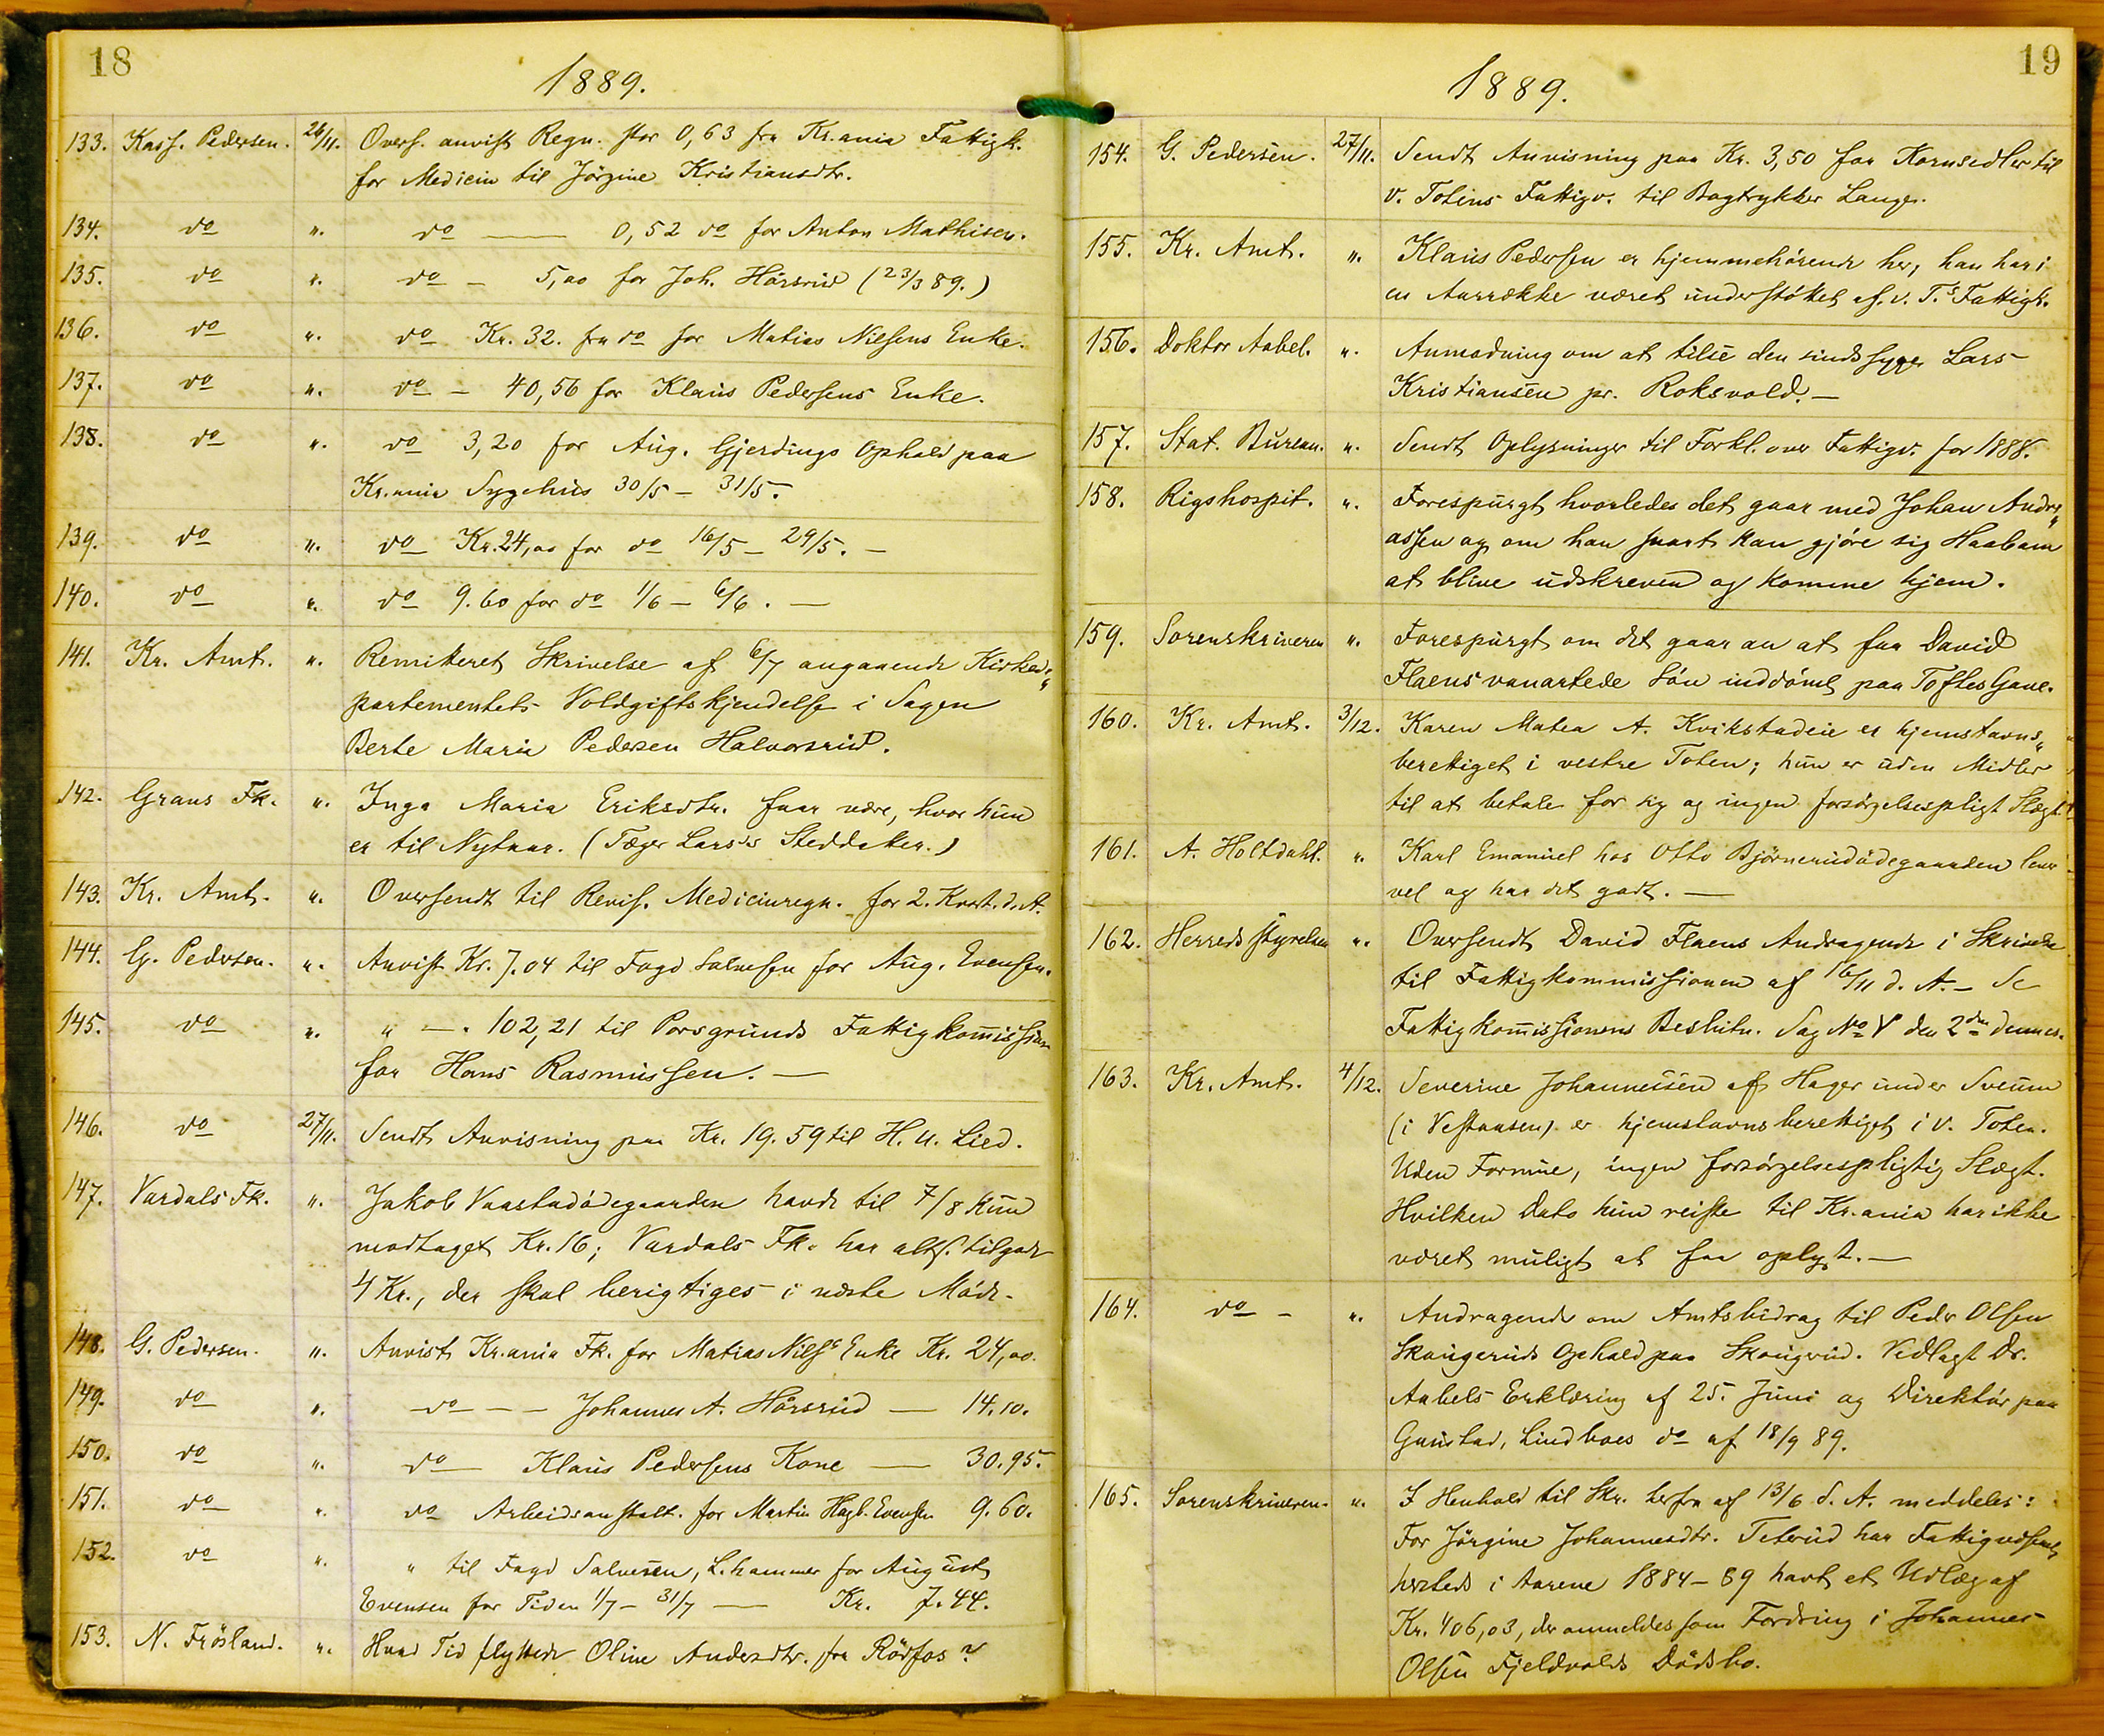 18
1889.
133. Kass. Pedersen. 26/11. Overs. anvist Regn. stor 0,63 fra Kr.ania Fattigk.
for Medicin til Jörgine Kristiansdtr.
134. do ". do — 0,52 do for Anton Mathisen.
135. do ". do – 5,00 for Joh. Hörsrud (23/3 89.)
136. do ". do Kr. 32. fra do for Matias Nilsens Enke.
137. do ". do – 40,56 for Klaus Pedersens Enke.
138. do ". do 3,20 for Aug. Gjerdings Ophold paa
Kr.ania Sygehus 30/5 – 31/5.
139. do ". do Kr. 24,00 for do 16/5 – 29/5. –
140. do ". do 9.60 for do 1/6 – 6/6. —
141. Kr. Amt. ". Remitteret Skrivelse af 6/7 angaaende Kirkede„
partementets Voldgiftskjendelse i Sagen
Berte Marie Pedersen Halvorsrud.
142. Grans Fk. ". Inga Maria Eriksdtr. faar være, hvor hun
er til Nytaar. ( Lars's Steddater.)
143. Kr. Amt. ". Oversendt til Revis. Medicinregn. for 2. Kvart. d. A.
144. G. Pedersen. ". Anvist Kr. 7.04 til Fogd Salvesen for Aug. Evensen.
145. do ". " —. 102,21 til Porsgrunds Fattigkommission
for Hans Rasmussen. —
146. do 27/11. Sendt Anvisning paa Kr. 19.59 til H. U. Lied.
147. Vardals Fk. ". Jakob Vaastadödegaarden havde til 7/8 kun
modtaget Kr. 16; Vardals Fk. har alts. tilgode
4 Kr., der skal berigtiges i næste Möde.
148. G. Pedersen. ". Anvist Kr.ania Fk. for Matias Nilss Enke Kr. 24,00.
149. do ". do – – Johannes A. Hörsrud — 14.10.
150. do ". do — Klaus Pedersens Kone — 30.95.
151. do ". do Arbeidsanstalt. for Martin Hagb. Evensen 9.60.
152. do ". " til Fogd Salvesen, L.hammer for August
Evensen for Tiden 1/7 – 31/7 — Kr. 7.44.
153. N. Frösland. ". Hvad Tid flyttede Oline Andersdtr. fra Rödfos?
19
1889.
154. G. Pedersen. 27/11. Sendt Anvisning paa Kr. 3,50 for Kornsedler til
V. Totens Fattigv. til Bogtrykker Lange.
155. Kr. Amt. ". Klaus Pedersen er hjemmehörende her, han har i
en Aarrække været understöttet af v. T.s Fattigk.
156. Doktor Aabel. ". Anmodning om at tilse den sindssyge Lars
Kristiansen pr. Roksvold. —
157. Stat. Bureau. ". Sendt Oplysninger til Forkl. over Fattigv. for 1888.
158. Rigshospit. ". Forespurgt hvorledes det gaar med Johan Andre„
assen og om han snart kan gjöre sig Haab om
at blive udskreven og komme hjem.
159. Sorenskriveren ". Forespurgt om det gaar an at faa David
Flaens vanartede Sön inddömt paa Toftes Gave.
160. Kr. Amt. 3/12. Karen Matea A. Kvikstadeie er hjemstavns„
berettiget i vestre Toten; hun er uden Midler
til at betale for sig og ingen forsörgelsespligt Slægt.
161. A. Holtdahl. ". Karl Emanuel hos Otto Björnerudödegaarden lever
vel og har det godt. —
162. Herredsstyrelsen ". Oversendt David Flaens Andragende i Skrivelse
til Fattigkommissionen af 16/11 d. A. – Se
Fattigkommissionens Beslutn. Sag No V den 2den dennes.
163. Kr. Amt. 4/12. Severine Johannessen af Hager under Sveum
(i Vestaasen) er hjemstavnsberettiget i v. Toten.
Uden Formue, ingen forsörgelsespligtig Slægt.
Hvilken Dato hun reiste til Kr.ania har ikke
været muligt at faa oplyst. —
164. do – ". Andragende om Amtsbidrag til Peder Olsen
Skaugeruds Ophold paa Skaugerud. Vedlagt Dr.
Aabels Erklæring af 25. Juni og Direktör paa
Gaustad, Lindboes do af 18/9 89.
165. Sorenskriveren. ". I Henhold til Skr. herfra af 13/6 d. A. meddeles:
For Jörgine Johannesdtr. Teterud har Fattigvæsenet
herteds i Aarene 1884–89 havt et Udlæg af
Kr. 406,03, der anmeldes som Fordring i Johannes
Olsen Fjeldvolds Dödsbo.